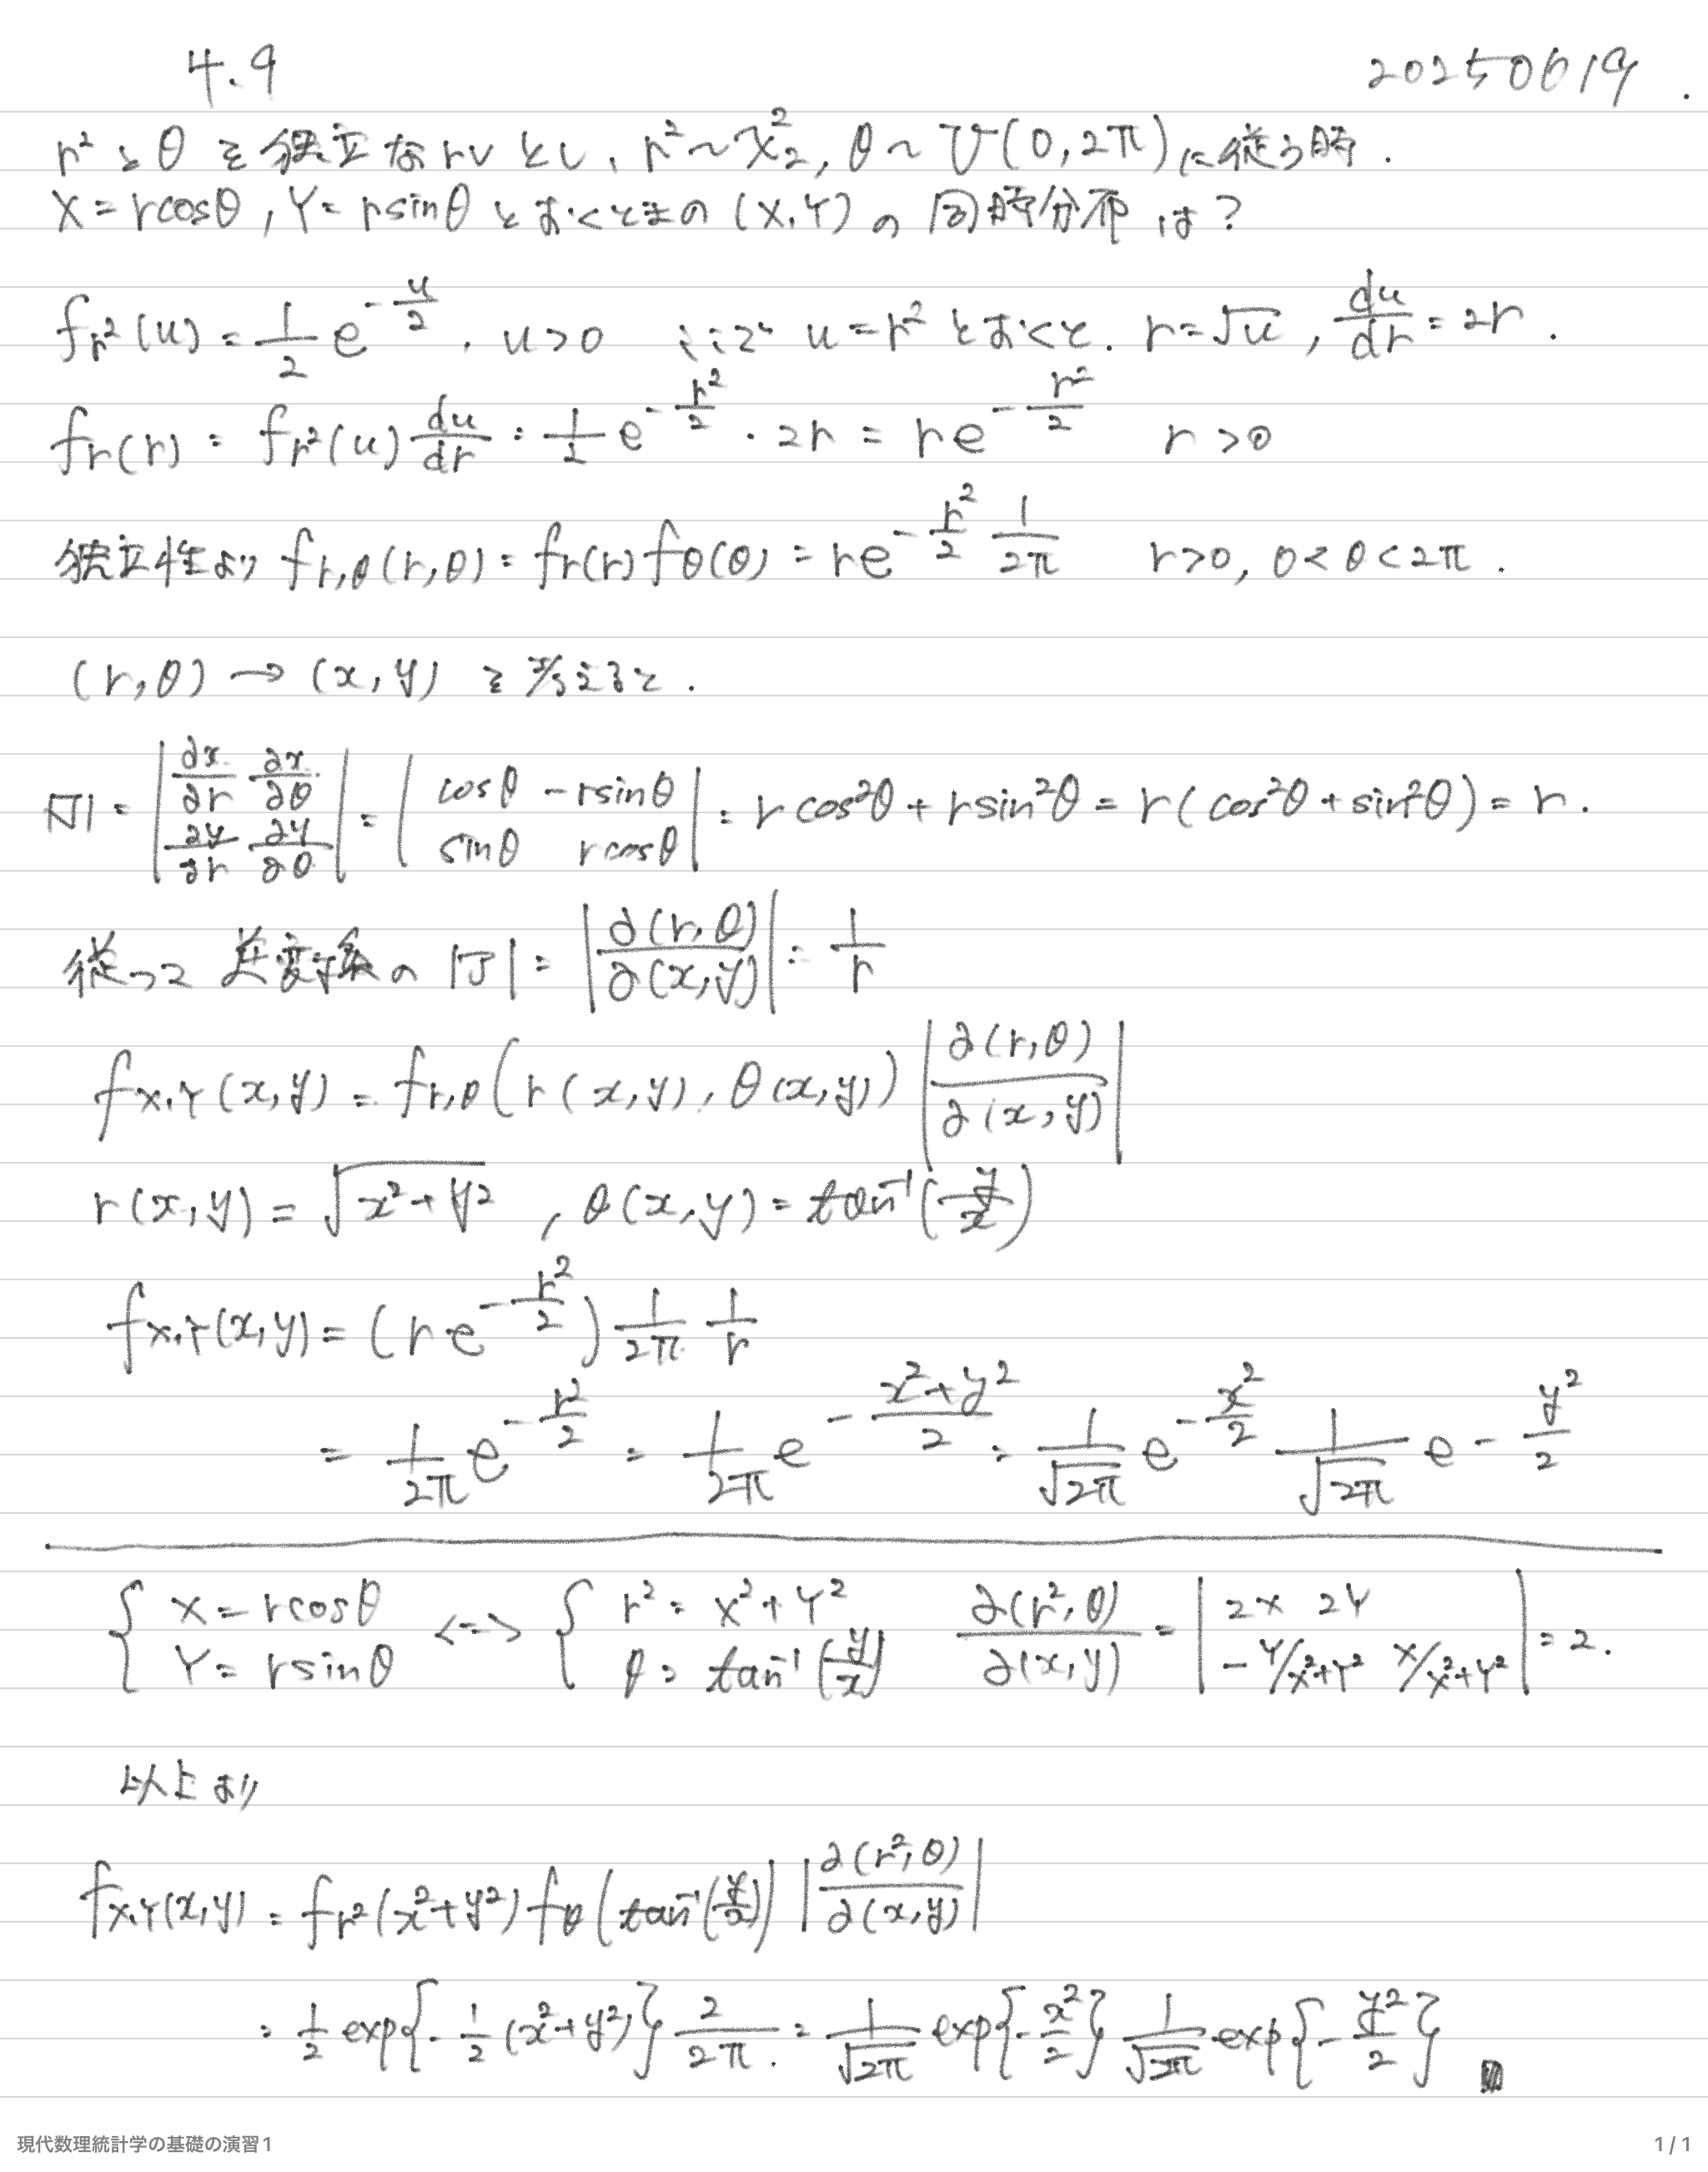 4.9 20250619.
r²とθを独立なrvとし、r²~χ²₂, θ~U(0,2π)に従う時.
X=rcosθ, Y=rsinθとおくときの(X,Y)の同時分布は?
f_{r²}(u) = 1/2 e^{-u/2}, u>0 ここで u=r²とおくと. r=√u, du/dr=2r.
f_r(r) = f_{r²}(u) du/dr = 1/2 e^{-r²/2}・2r = re^{-r²/2} r>0
独立性より f_{r,θ}(r,θ) = f_r(r)f_θ(θ) = re^{-r²/2} 1/2π r>0, 0<θ<2π.
(r,θ)→(x,y)を考えると.
|J| = |∂x/∂r ∂x/∂θ; ∂y/∂r ∂y/∂θ| = |cosθ -rsinθ; sinθ rcosθ| = rcos²θ+rsin²θ = r(cos²θ+sin²θ) = r.
従って逆変換の|J| = |∂(r,θ)/∂(x,y)| = 1/r
f_{X,Y}(x,y) = f_{r,θ}(r(x,y), θ(x,y)) |∂(r,θ)/∂(x,y)|
r(x,y) = √(x²+y²), θ(x,y) = tan⁻¹(y/x)
f_{X,Y}(x,y) = (re^{-r²/2}) 1/2π 1/r
= 1/2π e^{-r²/2} = 1/2π e^{-(x²+y²)/2} = 1/√2π e^{-x²/2} 1/√2π e^{-y²/2}
{X=rcosθ Y=rsinθ <=> {r²=X²+Y² θ=tan⁻¹(y/x) ∂(r²,θ)/∂(x,y) = |2X 2Y; -Y/X²+Y² X/X²+Y²| = 2.
以上より
f_{X,Y}(x,y) = f_{r²}(x²+y²) f_θ(tan⁻¹(y/x)) |∂(r²,θ)/∂(x,y)|
= 1/2 exp{-1/2(x²+y²)} 2/2π. = 1/√2π exp{-x²/2} 1/√2π exp{-y²/2}
現代数理統計学の基礎の演習1 1 / 1